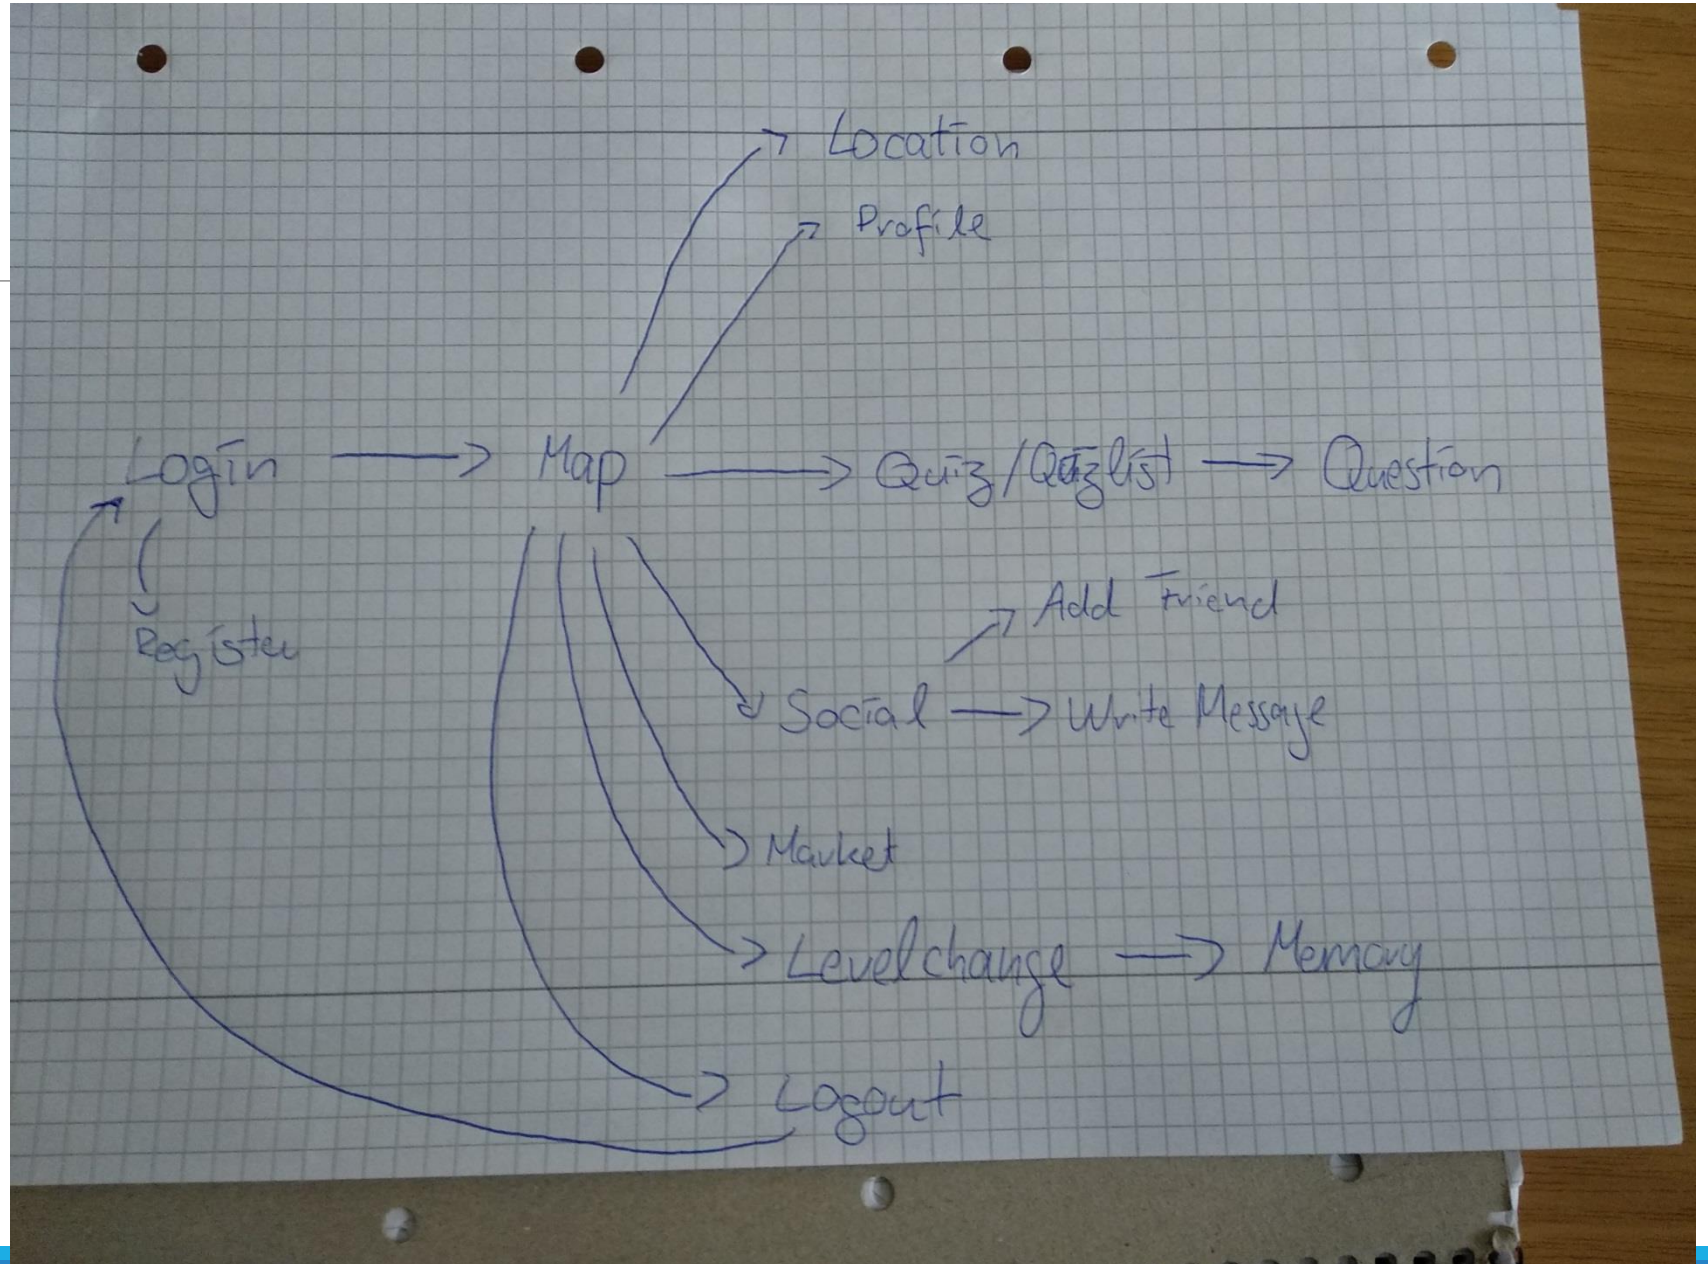 Location
Profile
Login Map Quiz/Quizlist Question
Add Friend
Register
Social Write Message
Market
Levelchange Memory
Logout